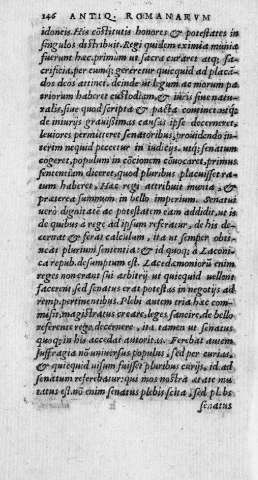 146 ANTIQ. ROMANARVM
idoneis. His cōstitutis honores & potestates in
singulos distribuit. Regi quidem eximia munia
fuerunt hæc. primum ut sacra curaret atq; sa-
crificia, per eumq; gereretur quicquid ad placā-
dos deos attinet. deinde ut legum ac morum pa
triorum haberet custodiam, & iuris siue natu-
ralis, siue quod scripta & pacta continet. utq;
de iniurijs grauissimas causas ipse decerneret,
leuiores permitteret senatoribus, prouidendo in-
terim nequid peccetur in iudicijs. utq; senatum
cogeret, populum in cōcionem cōuocaret, primus
sententiam diceret, quod pluribus placuisset ra-
tum haberet. Hæc regi attribuit munia, &
præterea summum in bello imperium. Senatui
uero dignitatē ac potestatem eam addidit, ut is
de quibus à rege ad ipsum referatur, de his de-
cernat & ferat calculum, ita ut semper obti-
neat plurium sententia: & id quoq; à Laconi-
ca repub. desumptum est. Lacedæmoniorū enim
reges non erant sui arbitrij ut quicquid uellent
facerent, sed senatus erat potestas in negotijs ad
remp. pertinentibus. Plebi autem tria hæc com-
misit, magistratus creare, leges sancire, de bello
referente rege decernere, ita tamen ut senatus
quoq; in his accedat autoritas. Ferebat autem
suffragia nō uniuersus populus, sed per curias,
& quicquid uisum fuisset pluribus curijs, id ad
senatum referebatur: qui mos nostra ætate mu
tatus est. nō enim senatus plebis scita, sed plebs
senatus